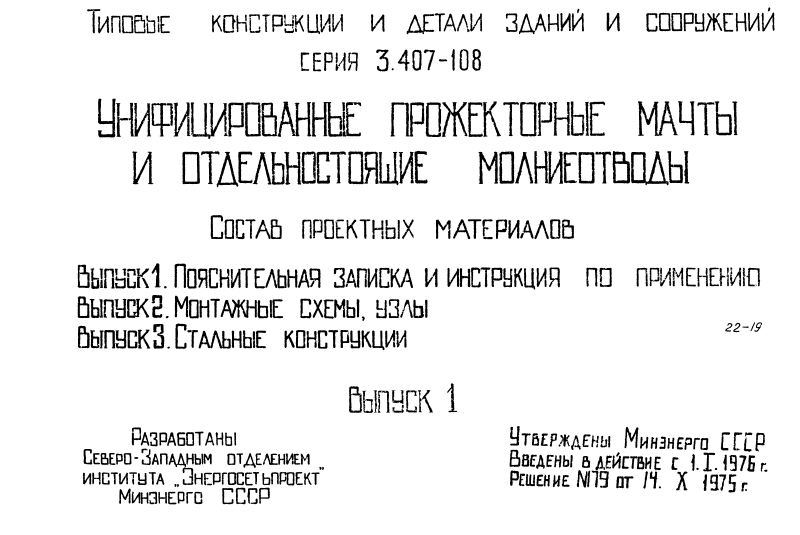 Типовые конструкции и детали зданий и сооружений
серия 3.407-108
Унифицированные прожекторные мачты
и отдельностоящие молниеотводы
Состав проектных материалов
Выпуск 1. Пояснительная записка и инструкция по применению
Выпуск 2. Монтажные схемы, узлы
Выпуск 3. Стальные конструкции
22-19
Выпуск 1
Разработаны
Северо-Западным отделением
института „Энергосетьпроект"
Минэнерго СССР
Утверждены Минэнерго СССР
Введены в действие с 1.I.1976г.
Решение №79 от 14. X 1975г.